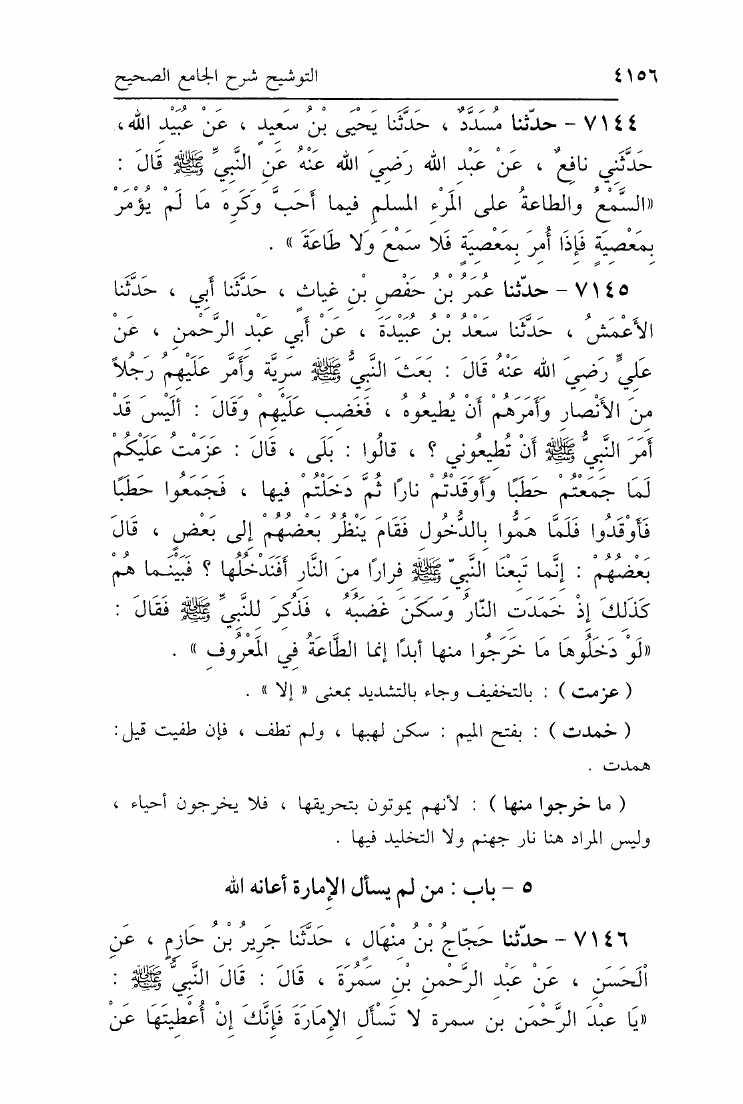 ٤١٥٦ التوشيح شرح الجامع الصحيح
٧١٤٤ - حدّثنا مُسَدَّدٌ ، حَدَّثَنا يَحْيَى بْنُ سَعِيدٍ ، عَنْ عُبَيْدِ الله،
حَدَّثَنِي نافِعٌ ، عَنْ عَبْدِ الله رَضِيَ الله عَنْهُ عَنِ النَّبِيِّ ﷺ قَالَ :
«السَّمْعُ والطاعةُ على المَرْءِ المسلمِ فيما أحَبَّ وَكَرِهَ مَا لَمْ يُؤْمَرْ
بِمَعْصِيَةٍ فَإذَا أُمِرَ بِمَعْصِيَةٍ فَلا سَمْعَ وَلا طَاعَةَ » .
٧١٤٥ - حدّثنا عُمَرُ بْنُ حَفْصِ بْنِ غياثٍ ، حَدَّثَنَا أبي ، حَدَّثَنَا
الأعْمَشُ ، حَدَّثَنَا سَعْدُ بْنُ عُبَيْدَةَ ، عَنْ أبي عَبْدِ الرَّحْمنِ ، عَنْ
عَلِيٍّ رَضِيَ الله عَنْهُ قَالَ : بَعَثَ النَّبِيُّ ﷺ سَرِيَّة وَأمَّرَ عَلَيْهِمُ رَجُلاً
مِنَ الأنْصارِ وَأمَرَهُمْ أنْ يُطيعُوهُ ، فَغَضِب عَلَيْهِمْ وَقَالَ : ألَيْسَ قَدْ
أمَرَ النَّبِيُّ ﷺ أنْ تُطِيعُوني ؟ ، قالُوا : بَلَى ، قَالَ : عَزَمْتُ عَلَيْكُمْ
لَمَا جَمَعْتُمْ حَطَبًا وَأوْقَدْتُمْ نارًا ثُمَّ دَخَلْتُمْ فيها ، فَجَمَعُوا حَطَبًا
فَأوْقَدُوا فَلَمَّا هَمُّوا بِالدُّخُولِ فَقَامَ يَنْظُرُ بَعْضُهُمْ إلى بَعْضٍ ، قَالَ
بَعْضُهُمْ : إنَّما تَبِعْنَا النَّبِيّ ﷺ فِرارًا مِنَ النَّارِ أفَنَدْخُلُها ؟ فَبَيْنَـما هُمْ
كَذَلِكَ إذْ خَمَدَتِ النّارُ وَسَكَنَ غَضَبُهُ ، فَذُكِرَ للنَّبِيِّ ﷺ فَقَالَ :
«لَوْ دَخَلُوهَا مَا خَرَجُوا منها أبدًا إنما الطَّاعَةُ فِي المَعْرُوفِ » .
( عزمت ) : بالتخفيف وجاء بالتشديد بمعنى « إلا » .
( خمدت ) : بفتح الميم : سكن لهبها ، ولم تطف ، فإن طفيت قيل:
همدت .
( ما خرجوا منها ) : لأنهم يموتون بتحريقها ، فلا يخرجون أحياء ،
وليس المراد هنا نار جهنم ولا التخليد فيها .
٥ - باب : من لم يسأل الإمارة أعانه الله
٧١٤٦ - حدّثنا حَجّاجُ بْنُ مِنْهَالٍ ، حَدَّثَنَا جَرِيرُ بْنُ حَازِمٍ ، عَنِ
الْحَسَنِ ، عَنْ عَبْدِ الرَّحْمنِ بْنِ سَمُرَةَ ، قَالَ : قَالَ النَّبِيُّ ﷺ :
«يَا عبْدَ الرَّحْمَنِ بن سمرة لا تَسْألِ الإمَارَةَ فَإنَّكَ إنْ أُعْطِيتَهَا عَنْ